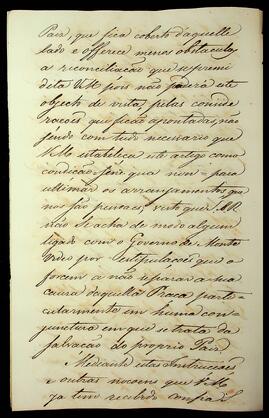 Paiz, que fica coberto d'aquelle
lado e offerece menos obstaculos
a reconciliação que se premi
dita VM pois não poderá ser
objecto de vista, pelas conside
rações que ficão apontadas, não
sendo com tudo necessario que
VM estabeleça este artigo como
condição sine qua non para
ultimar os arranjamentos que
nos são precisos, visto que
não se acha de modo algum
ligado com o Governo de Monte
Video por estipulações que o
forcem a não separar a sua
causa d'aquella Praça, parti-
cularmente em huma con-
junctura em que se trata da
salvação do proprio Paiz.
Mediante estas Instrucções
e outras noçoens que VM
ja tem recebido